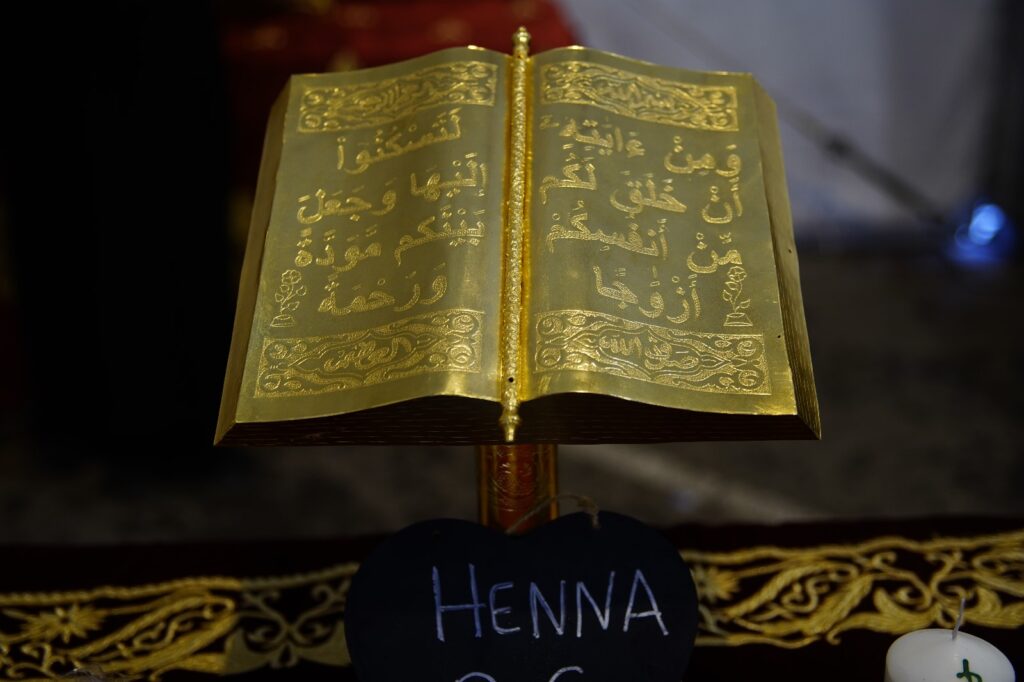 وَمِنْ ءَايَٰتِهِۦٓ
أَنْ خَلَقَ لَكُم
مِّنْ أَنفُسِكُمْ
أَزْوَٰجًا
صدق الله
لِّتَسْكُنُوٓا۟
إِلَيْهَا وَجَعَلَ
بَيْنَكُم مَّوَدَّةً
وَرَحْمَةً
العظيم
HENNA